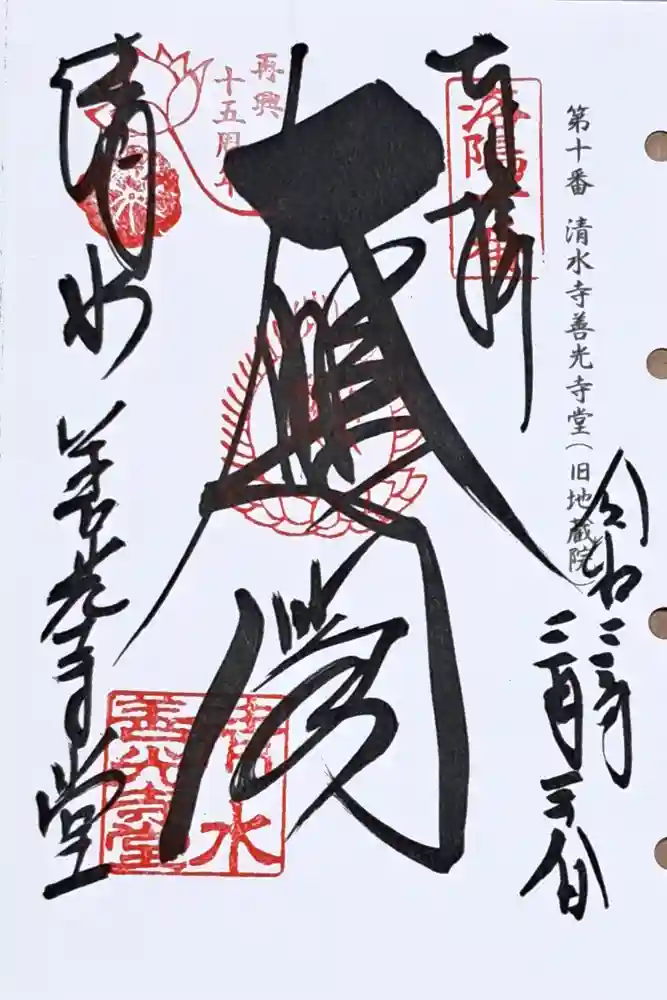 第十番 清水寺善光寺堂(旧地蔵院)
奉拝
洛陽
令和
大悲閣
再興
十五周年
清水
善光寺堂
清水善光寺堂